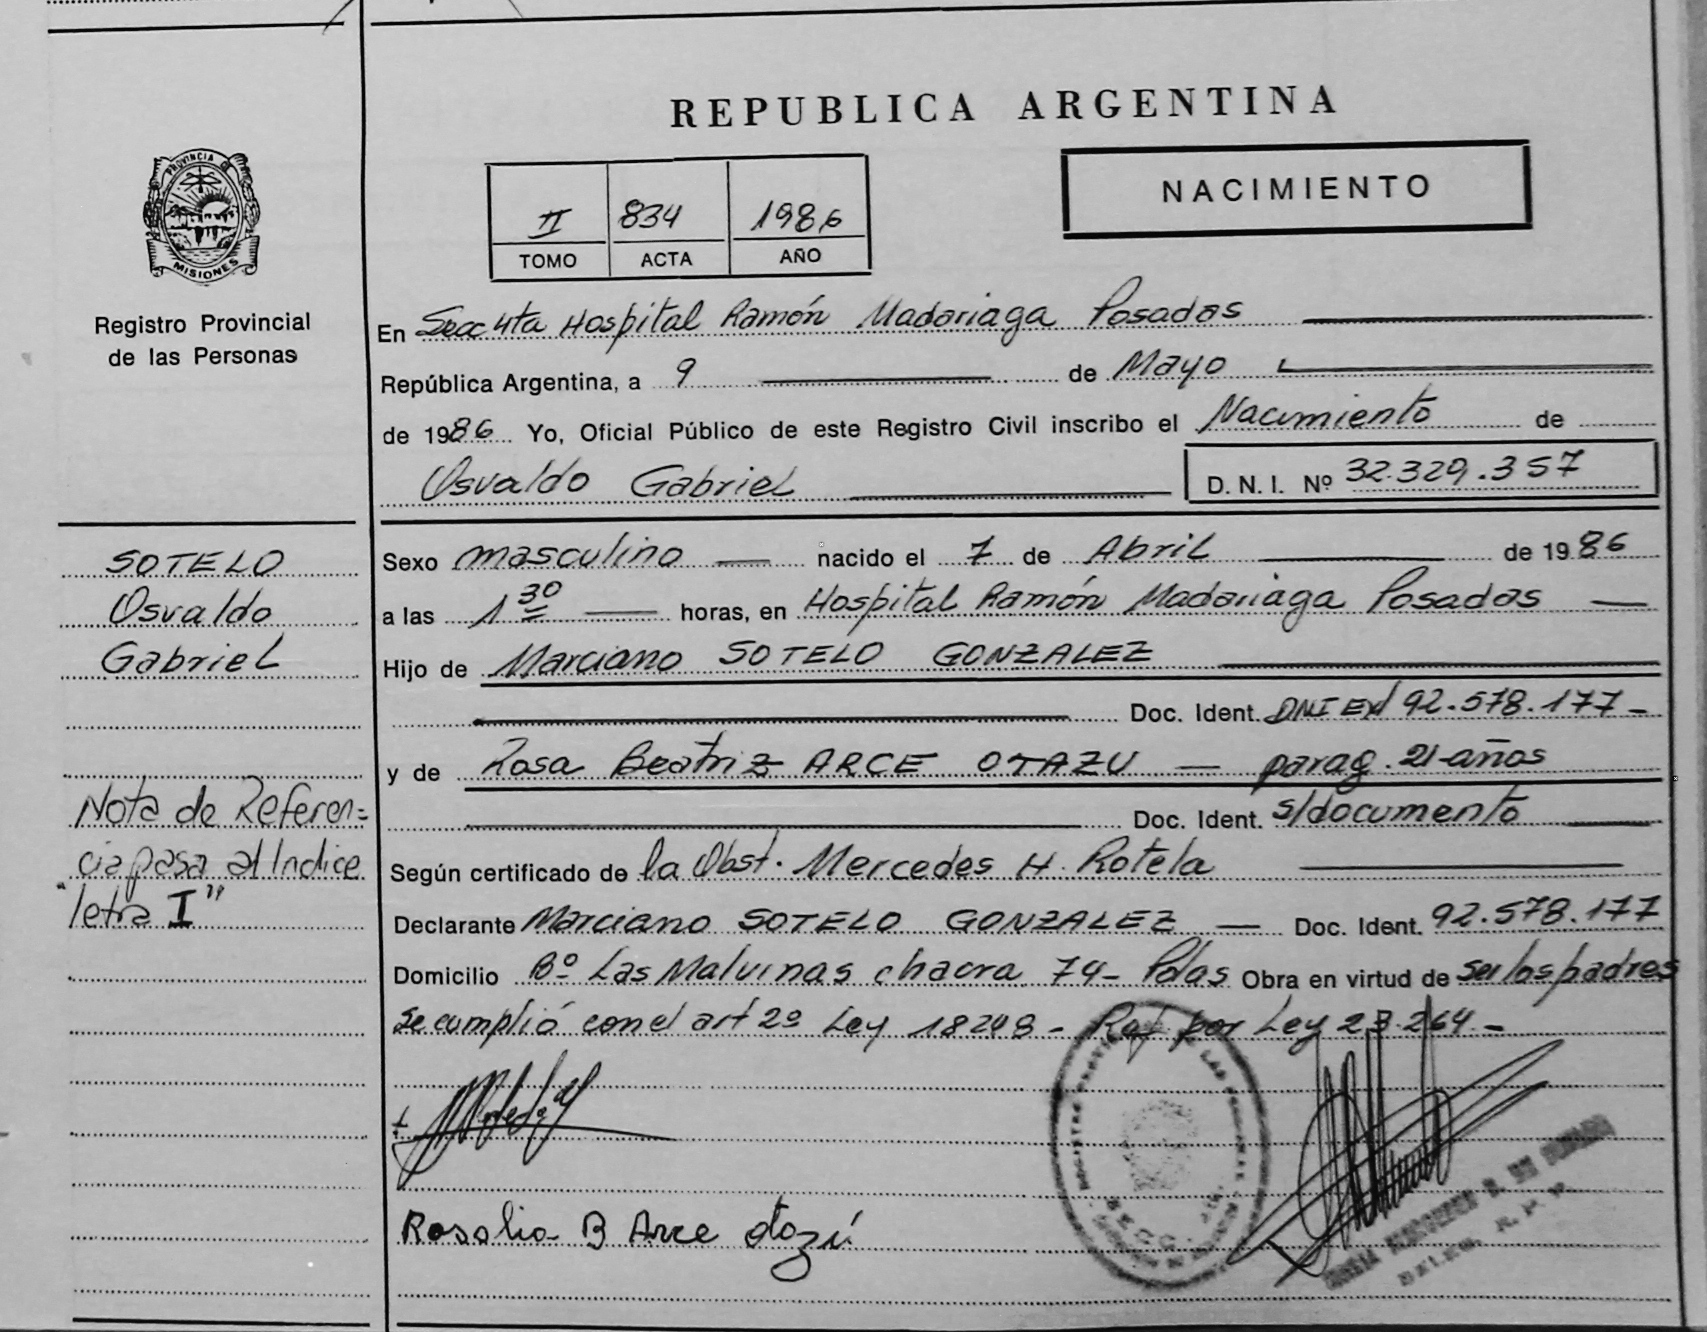 REPUBLICA ARGENTINA
PROVINCIA DE
MISIONES
Registro Provincial
de las Personas
II 834 1986
TOMO ACTA AÑO
NACIMIENTO
En Secc 4ta Hospital Ramón Madariaga Posadas
República Argentina, a 9 de Mayo
de 1986 Yo, Oficial Público de este Registro Civil inscribo el Nacimiento de
Osvaldo Gabriel D. N. I. Nº 32.329.357
SOTELO
Osvaldo
Gabriel
Nota de Referen=
cia pasa al Indice
"letra I"
Sexo masculino nacido el 7 de Abril de 1986
a las 1 30 horas, en Hospital Ramón Madariaga Posadas
Hijo de Marciano SOTELO GONZALEZ
Doc. Ident. DNI Ex/ 92.578.177-
y de Rosa Beatriz ARCE OTAZU - parag. 21 años
Doc. Ident. s/documento
Según certificado de la Obst. Mercedes H. Rotela
Declarante Marciano SOTELO GONZALEZ - Doc. Ident. 92.578.177
Domicilio Bº Las Malvinas chacra 74- Pdas Obra en virtud de ser los padres
Se cumplió con el art 2º Ley 18248 - Rat por Ley 23.264.-
Rosalia B Arce otazú